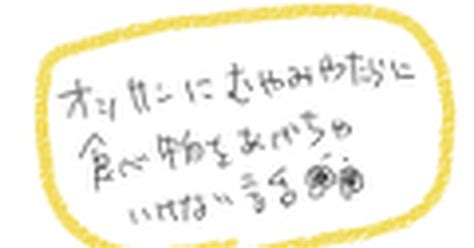 オッサンにむやみやたらに
食べ物をあげちゃ
いけない話